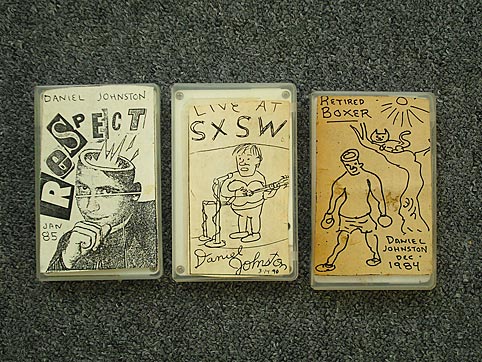 DANIEL JOHNSTON
ReSPECT
JAN
85
LIVE AT
SXSW
Daniel Johnston
3/14 90
RETIRED
BOXER
DANIEL
JOHNSTON
DEC
1984